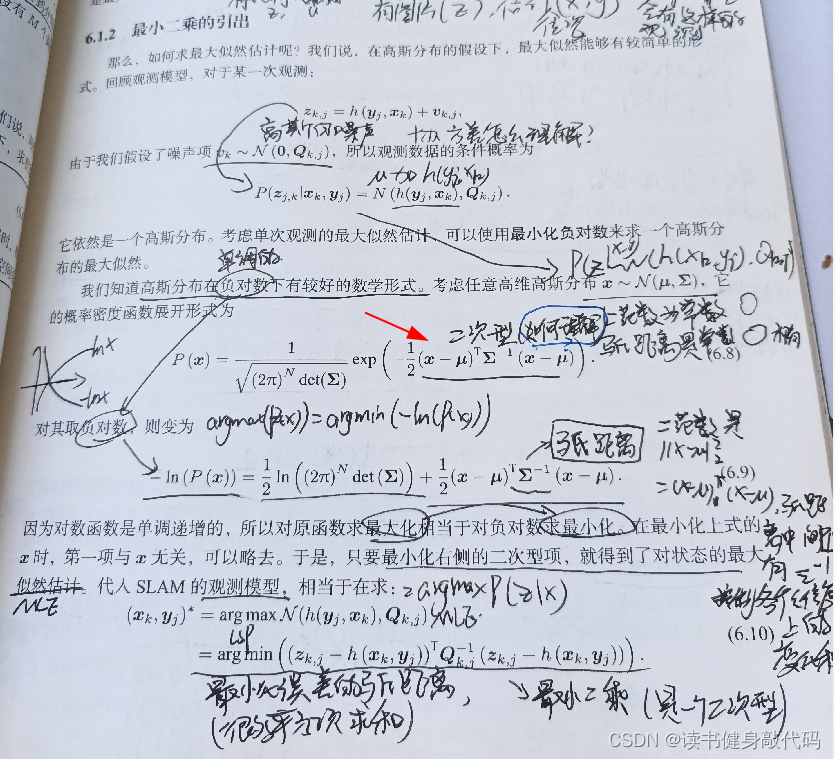 6.1.2 最小二乘的引出
那么，如何求最大似然估计呢？我们说，在高斯分布的假设下，最大似然能够有较简单的形
式。回顾观测模型，对于某一次观测：
z_{k,j} = h(y_j, x_k) + v_{k,j},
协方差怎么理解？
由于我们假设了噪声项 v_k ~ N(0, Q_{k,j})，所以观测数据的条件概率为
P(z_{j,k}|x_k, y_j) = N(h(y_j, x_k), Q_{k,j}).
它依然是一个高斯分布。考虑单次观测的最大似然估计，可以使用最小化负对数来求一个高斯分
布的最大似然。
我们知道高斯分布在负对数下有较好的数学形式。考虑任意高维高斯分布 x ~ N(μ, Σ)，它
的概率密度函数展开形式为
二次型 如何理解？
P(x) = 1/√((2π)^N det(Σ)) exp(−1/2 (x − μ)^T Σ^{−1} (x − μ)). (6.8)
lnx
-lnx
对其取负对数，则变为 argmax(P(x)) = argmin(-ln(P(x)))
马氏距离
−ln(P(x)) = 1/2 ln((2π)^N det(Σ)) + 1/2 (x − μ)^T Σ^{−1} (x − μ). (6.9)
因为对数函数是单调递增的，所以对原函数求最大化相当于对负对数求最小化。在最小化上式的
x 时，第一项与 x 无关，可以略去。于是，只要最小化右侧的二次型项，就得到了对状态的最大
似然估计。代入 SLAM 的观测模型，相当于在求： =argmax P(z|x)
MLE
(x_k, y_j)* = arg max N(h(y_j, x_k), Q_{k,j})
= arg min ((z_{k,j} − h(x_k, y_j))^T Q_{k,j}^{−1} (z_{k,j} − h(x_k, y_j))). (6.10)
最小化误差的马氏距离，
最小二乘 (是一个二次型)
CSDN @读书健身敲代码